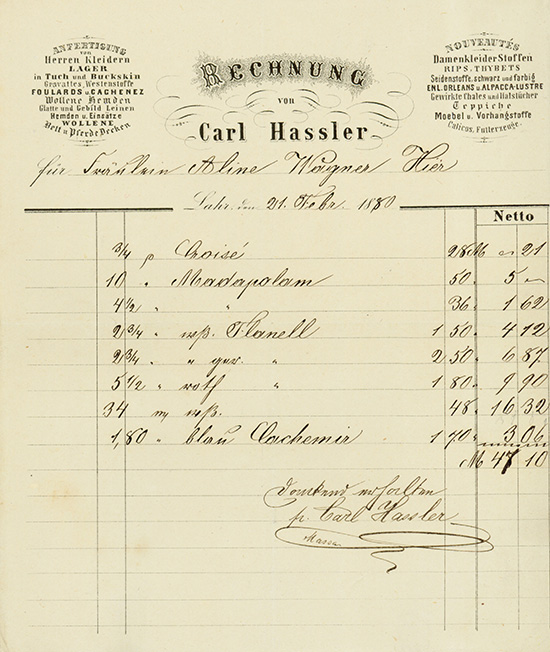 ANFERTIGUNG
von
Herren Kleidern
LAGER
in Tuch und Buckskin
Gravattes, Westenstoffe
FOULARDS u. CACHENEZ
Wollene Hemden
Glatte und Gebild Leinen
Hemden u. Einsätze
WOLLENE
Bett u. Pferde Decken
RECHNUNG
von
Carl Hassler
NOUVEAUTÉS
Damenkleider Stoffen
RIPS, THYBETS
Seidenstoffe, schwarz und farbig
ENL. ORLEANS u. ALPACCA-LUSTRE
Gewirkte Châles und Halstücher
Teppiche
Moebel u. Vorhangstoffe
Calicos, Futterzeuge.
für Fräulein Aline Wagner Hier
Lahr, den 21. Febr. 1880
Netto
3/4 p Croisé 28 M 21
10 " Madapolam 50 " 5 —
4 1/2 " " 36 " 1 62
2 3/4 " wß. Flanell 1 50 " 4 12
2 3/4 " " " 2 50 " 6 87
5 1/2 " roth " 1 80 " 9 90
34 m wß. 48 " 16 32
1,80 " blau Cachemir 1 70 " 3 06
M 47 10
dankend erhalten
p. Carl Hassler